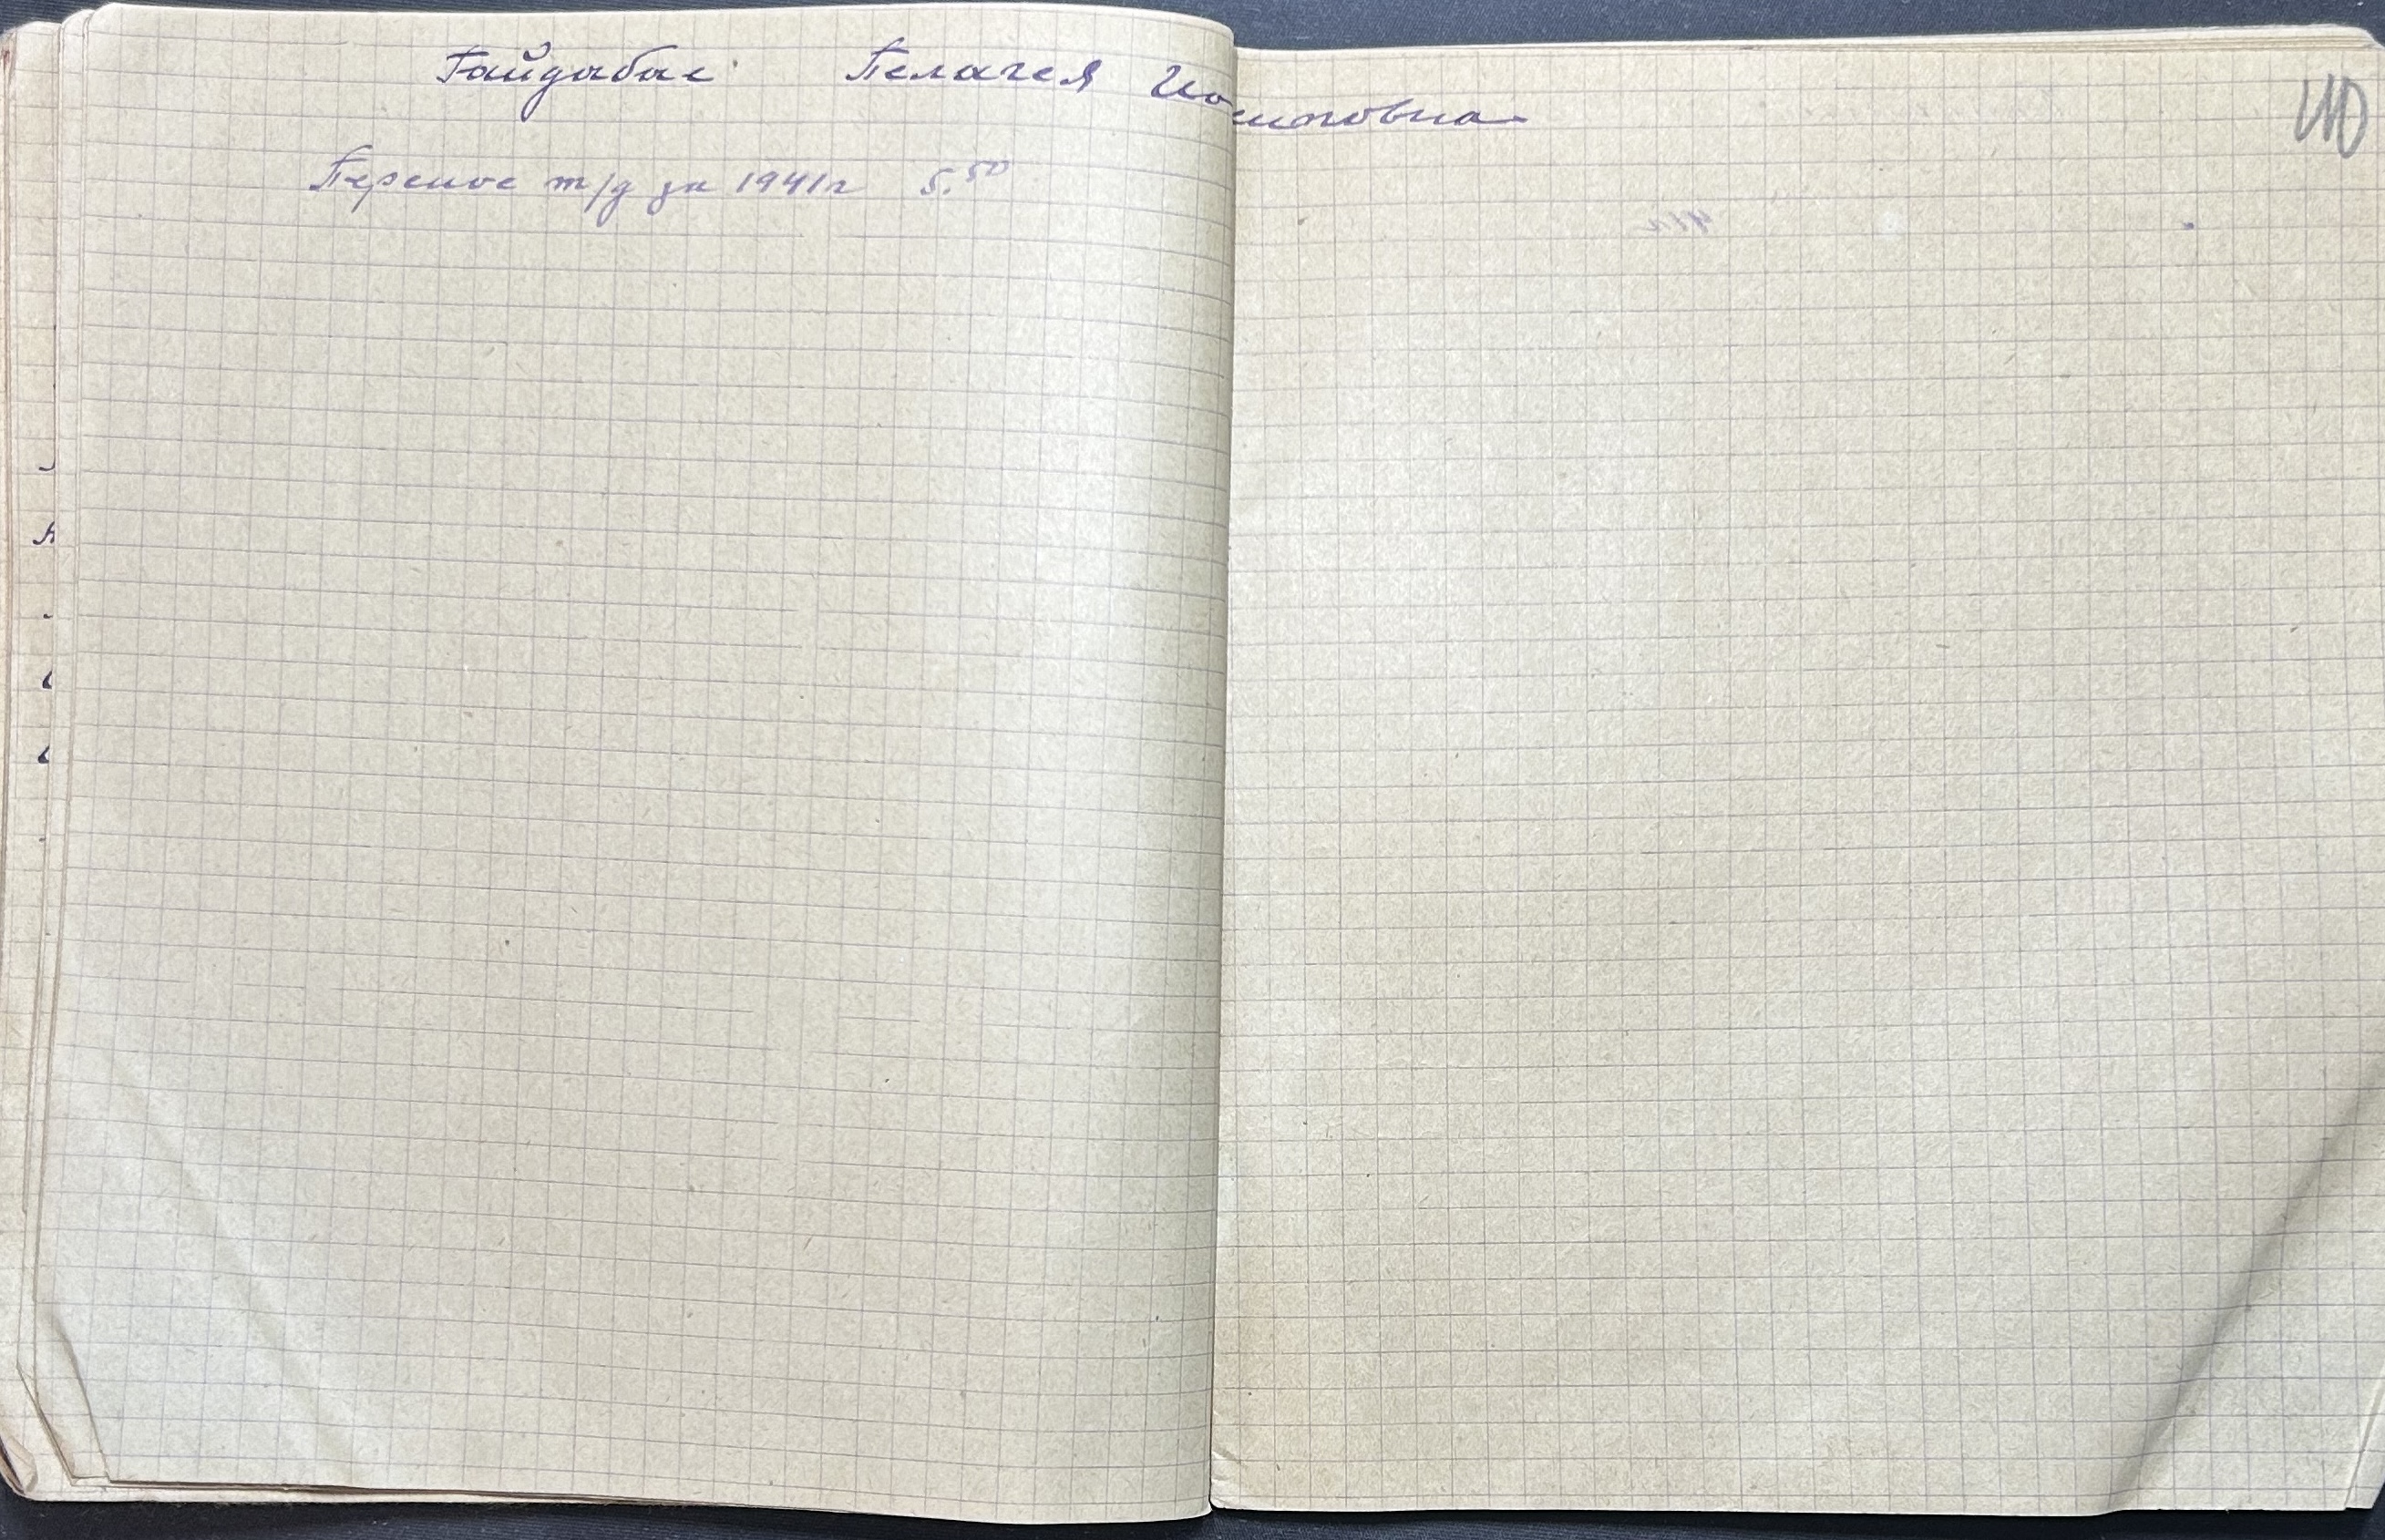 Гайдабас Пелагея Иосиповна
Перенос т/д за 1941г 5.50